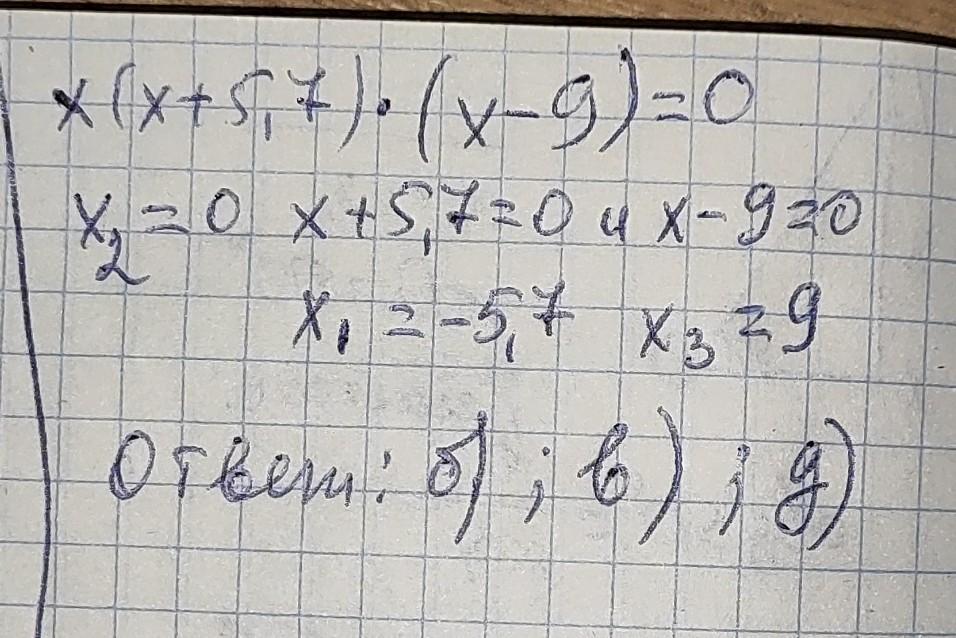 x(x+5,7)·(x-9)=0
x₂=0 x+5,7=0 и x-9=0
x₁=-5,7 x₃=9
Ответ: б) ; в) ; д)